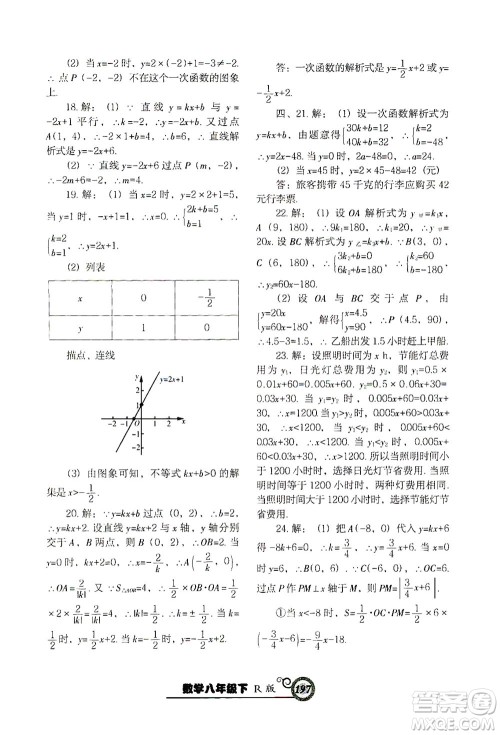 (2) 当 x=-2 时，y=2×(-2)+1=-3≠-2.
∴点 P(-2，-2)不在这个一次函数的图象
上.
18.解：(1)∵直线 y=kx+b 与 y=
-2x+1 平行，∴k=-2，∴y=-2x+b. 又过点
A(1，4)，∴4=-2×1+b，∴b=6，∴直线解
析式是 y=-2x+6.
(2)∵直线过点 P(m，2)，∴2=
-2m+6，∴m=2.
19.解：(1)当 x=2 时，y=5，
当 y=1 时，x=0，∴{2k+b=5 b=1，
∴{k=2 b=1
(2) 列表
x 0 -1/2
y 1 0
描点，连线
y y=2x+1
-2 0 2 x
(3) 由图象可知，不等式 kx+b>0 的解
集是 x>-1/2.
20.解：∵y=kx+b 过点(0，2)，∴b=2，
∴y=kx+2. 设直线与 x 轴，y 轴分别
交于 A，B 两点，∴B(0，2)，∴OB=2. 当
y=0 时，kx+2=0，∴x=-2/k，∴A(-2/k，0)，
∴OA=2/|k|. 又∵S△AOB=4，∴1/2×OB·OA=1/2
×2×2/|k|=4，∴2/|k|=4，∴|k|=1/2，∴当 k
=1/2 时，y=1/2x+2，当 k=-1/2 时，y=-1/2x+2.
答：一次函数的解析式是 y=1/2x+2 或
y=-1/2x+2.
四、21.解：(1)设一次函数解析式为
y=kx+b，由题意得{30k+b=12 40k+b=32，∴{k=2 b=-48
∴y=2x-48. 当 y=0 时，2x-48=0，∴x=24.
(2) 当 x=45 时，y=2×45-48=42.
答：旅客携带 45 千克的行李应购买 42
元行李票.
22.解：(1)设 OA 解析式为 y甲=k₁x，
A(9，180)，∴9k₁=180，∴k₁=20，∴y甲=
20x. 设 BC 解析式为 y乙=k₂x+b，B(3，0)，
C(6，180)，∴{3k₂+b=0 6k₂+b=180，∴{k₂=60 b=-180，
∴y₂=60x-180.
(2) 设 OA 与 BC 交于点 P，由
{y=20x y=60x-180，得{x=4.5 y=90，∴P(4.5，90)，
∴4.5-3=1.5，∴乙船出发 1.5 小时赶上甲船.
23.解：设照明时间为 x h，节能灯总费
用为 y₁，日光灯总费用为 y₂，则 y₁=0.5×
0.01x+60=0.005x+60，y₂=0.5×0.06x+30=
0.03x+30. 当 y₁=y₂ 时，0.005x+60=0.03x+
30，∴x=1200，当 y₁>y₂ 时，0.005x+60>
0.03x+30，∴x<1200. 当 y₁<y₂ 时，0.005x+
60<0.03x+30，∴x>1200. 所以当照明时间小
于 1200 小时时，选择日光灯节省费用. 当照
明时间等于 1200 小时时，两种灯费用一样.
当照明时间大于 1200 小时时，选择节能灯节
省费用.
24.解：(1)把 A(-8，0)代入 y=kx-6，
∴k=-3/4，∴y=-3/4x-6. (2)当 x=0 时，
y=-6，∴C(0，-6)，∴OC=6，∵P(x，y)，
过点 P 作 PM⊥x 轴于 M，∴PM=|-3/4x-6|
①当 x<-8 时，S=1/2·OC·PM=1/2×6×
(-3/4x-6)=-9/4x-18.
数学八年级下 R 版 197
答案圈
MXQE.COM